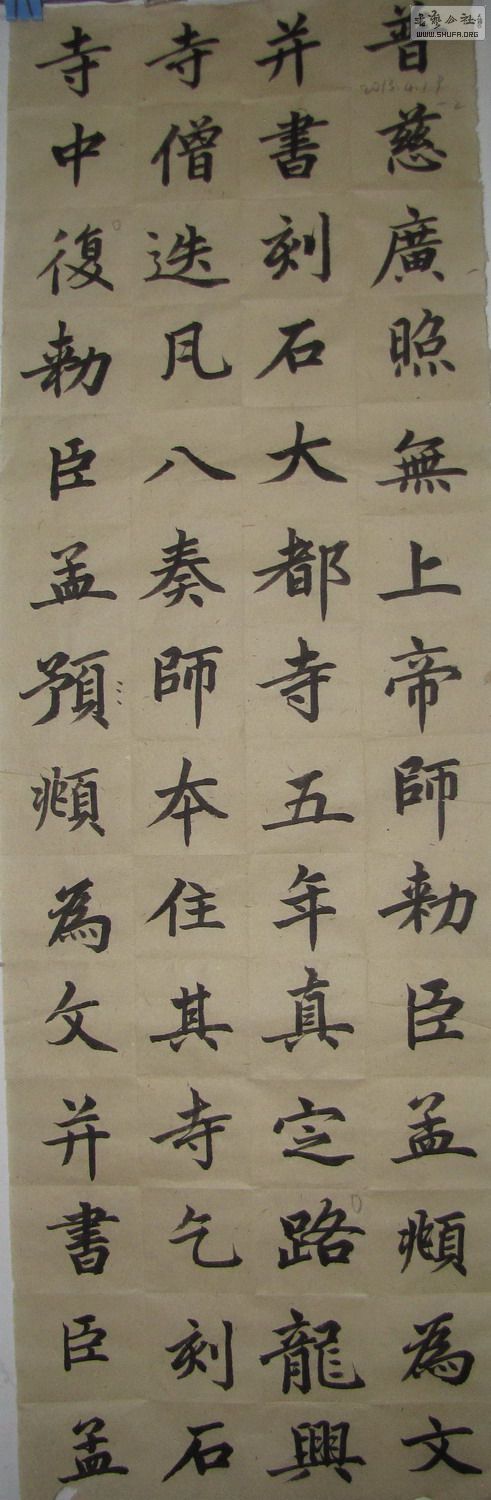 普慈廣照無上帝師勅臣孟頫為文
并書刻石大都寺五年真定路龍興
寺僧迭凡八奏師本住其寺乞刻石
寺中復勅臣孟預頫為文并書臣孟
书艺公社
WWW.SHUFA.ORG